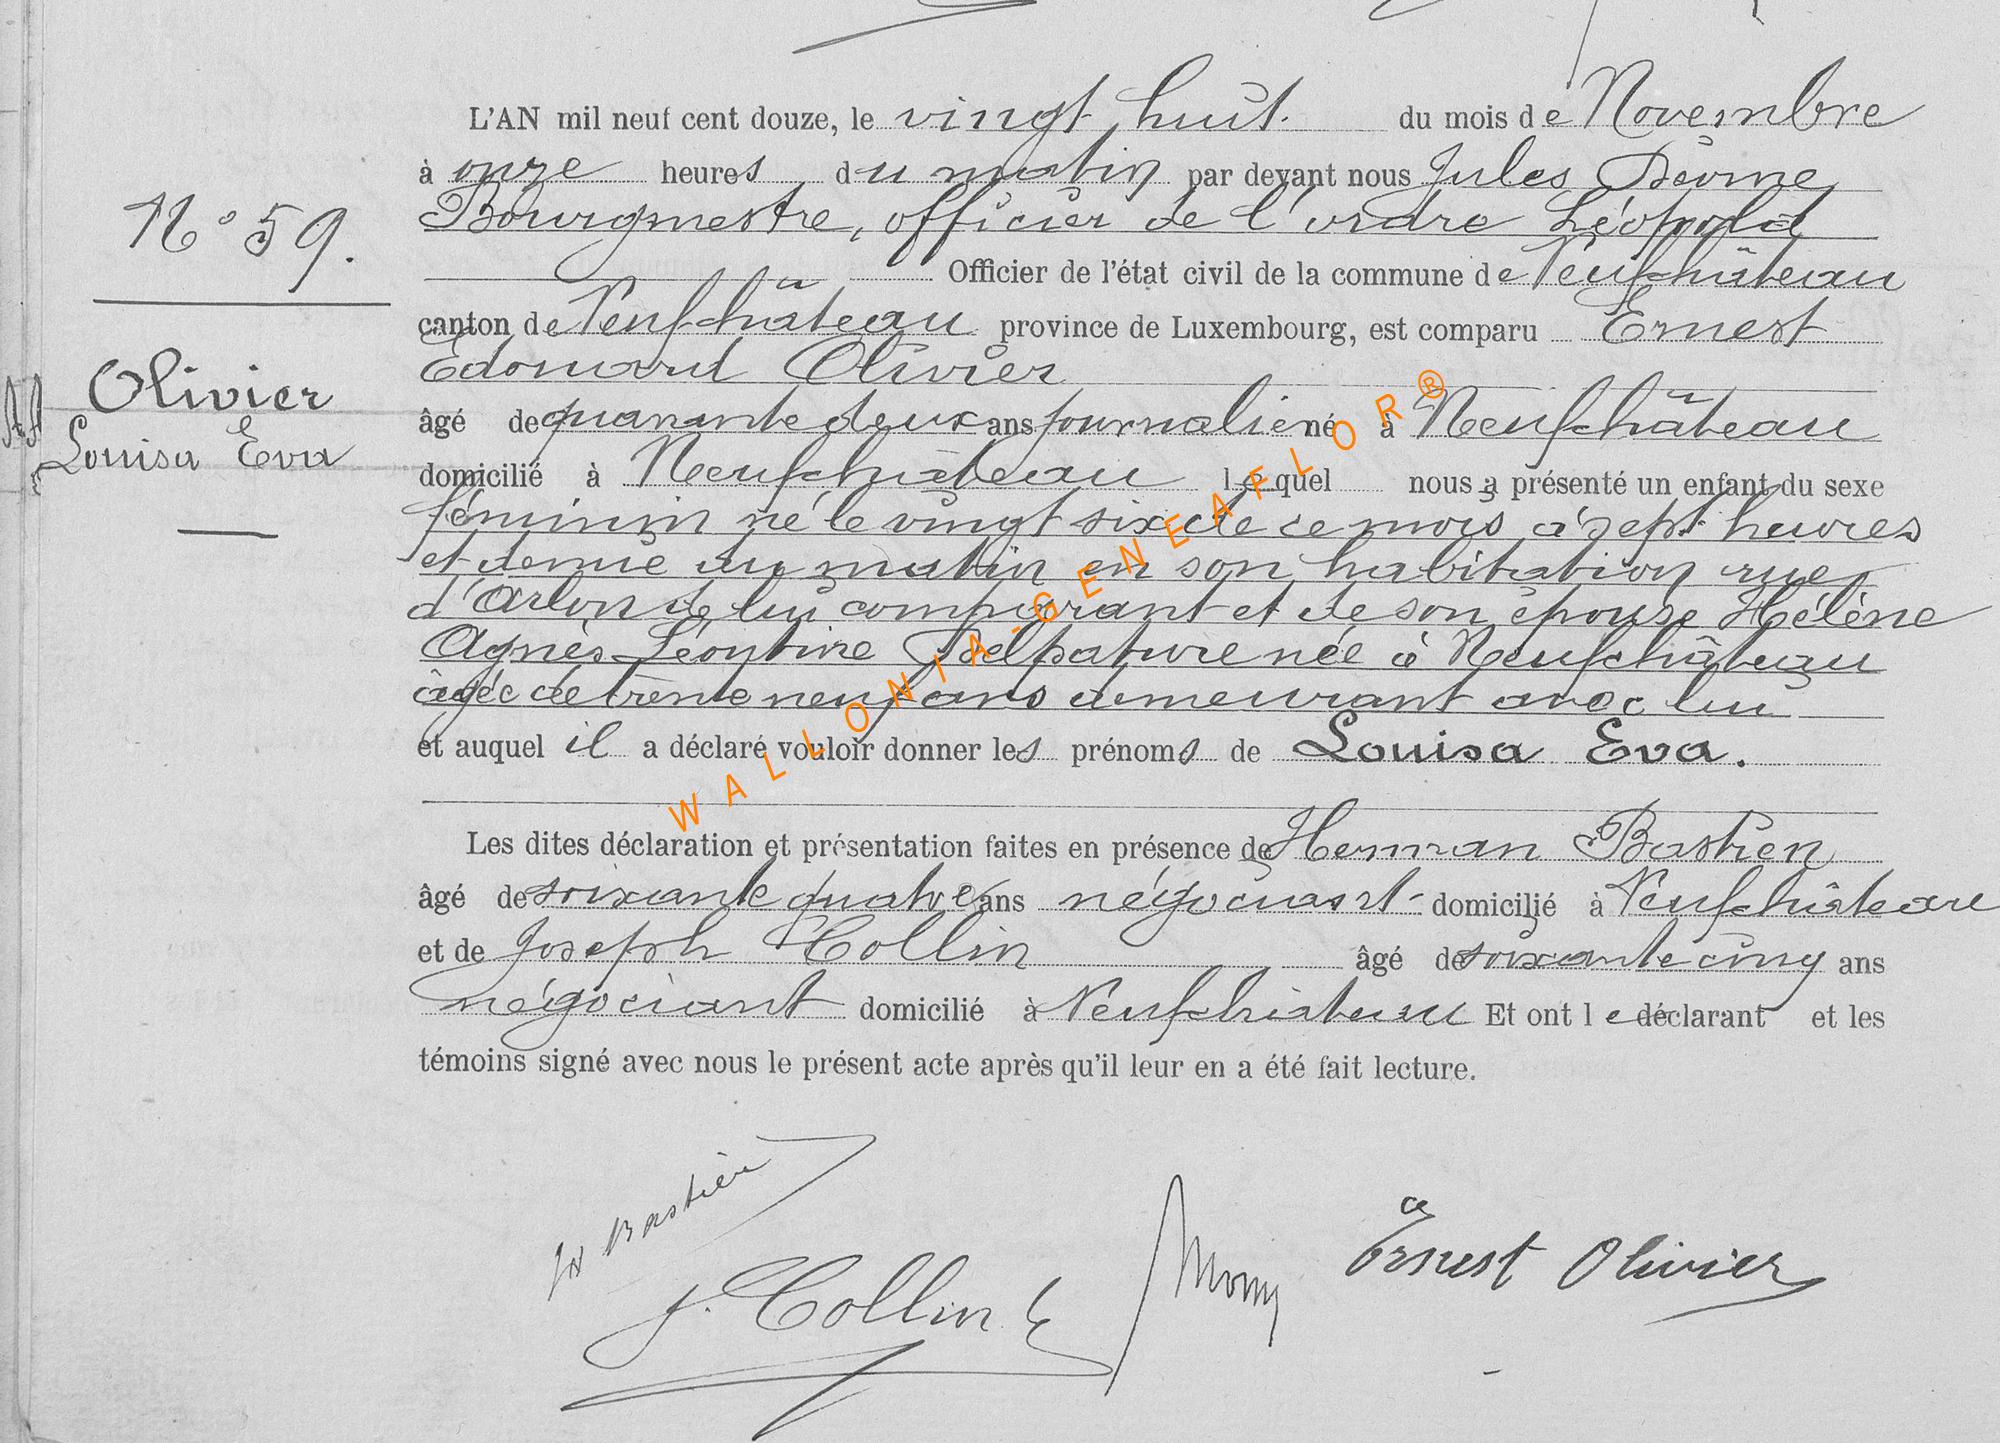 N° 59.
Olivier
Louisa Eva
L'AN mil neuf cent douze, le vingt huit du mois de Novembre
à onze heures du matin par devant nous Jules
Bourgmestre, officier de l'ordre Léopold
Officier de l'état civil de la commune de Neufchâteau
canton de Neufchâteau province de Luxembourg, est comparu Ernest
Edouard Olivier
âgé de quarante deux ans journalier né à Neufchâteau
domicilié à Neufchâteau lequel nous a présenté un enfant du sexe
féminin né le vingt six de ce mois à sept heures
et demie du matin en son habitation rue
d'Arlon de lui comparant et de son épouse Hélène
Agnès Léontine Delpature née à Neufchâteau
âgée de trente neuf ans demeurant avec lui
et auquel il a déclaré vouloir donner les prénoms de Louisa Eva.
Les dites déclaration et présentation faites en présence de Herman Bastien
âgé de soixante quatre ans négociant domicilié à Neufchâteau
et de Joseph Collin âgé de soixante cinq ans
négociant domicilié à Neufchâteau Et ont le déclarant et les
témoins signé avec nous le présent acte après qu'il leur en a été fait lecture.
Bastien
J. Collin
Ernest Olivier
WALLONIA-GENEAFLOR®